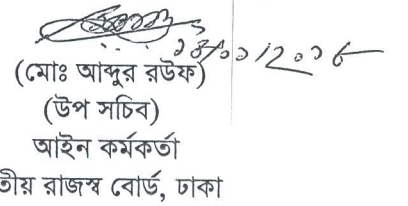 (মোঃ আব্দুর রউফ)
(উপ সচিব)
আইন কর্মকর্তা
তীয় রাজস্ব বোর্ড, ঢাকা